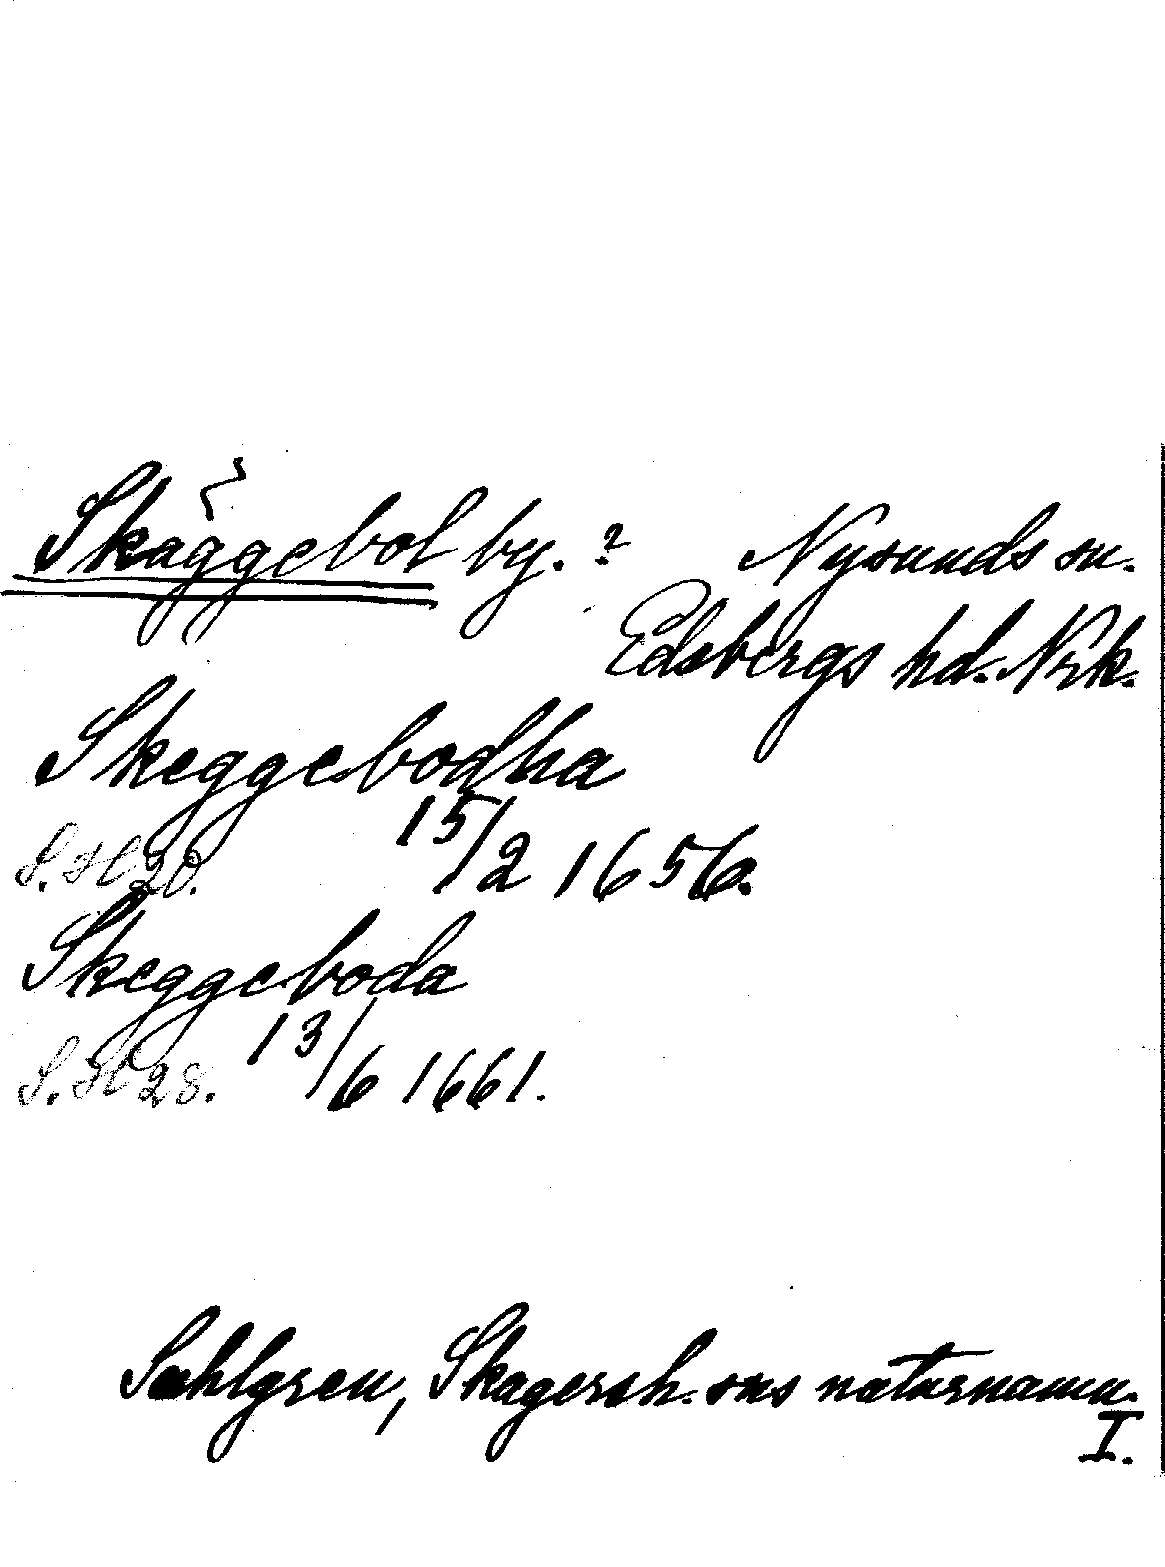 Skäggebol by. ? Nysunds sn.
Edsbergs hd. Nrk.
Skeggebodha
15/2 1656.
S. 20.
Skeggeboda
13/6 1661.
S. 28.
Sahlgren, Skagersh. sns naturnamn.
I.